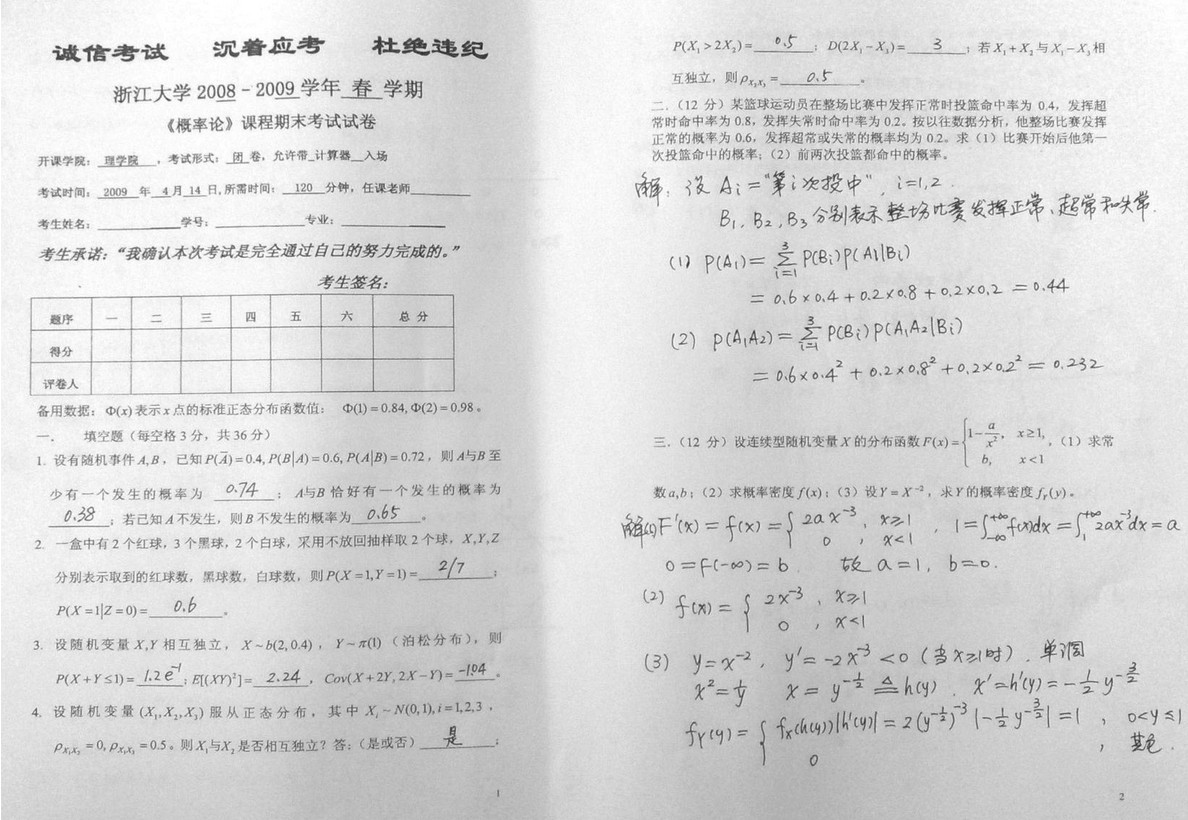 诚信考试 沉着应考 杜绝违纪
浙江大学 2008－2009 学年 春 学期
《概率论》课程期末考试试卷
开课学院： 理学院 ，考试形式： 闭 卷，允许带 计算器 入场
考试时间： 2009 年 4 月 14 日,所需时间： 120 分钟，任课老师
考生姓名： 学号： 专业：
考生承诺：“我确认本次考试是完全通过自己的努力完成的。”
考生签名：
题序 一 二 三 四 五 六 总 分
得分
评卷人
备用数据：Φ(x)表示x点的标准正态分布函数值： Φ(1) = 0.84, Φ(2) = 0.98。
一． 填空题（每空格 3 分，共 36 分）
1. 设有随机事件 A, B，已知 P(A̅) = 0.4, P(B|A) = 0.6, P(A|B) = 0.72，则 A与B 至
少有一个发生的概率为 0.74 ； A与B 恰好有一个发生的概率为
0.38 ；若已知 A 不发生，则 B 不发生的概率为 0.65 。
2. 一盒中有 2 个红球，3 个黑球，2 个白球，采用不放回抽样取 2 个球，X,Y,Z
分别表示取到的红球数，黑球数，白球数，则 P(X =1,Y =1) = 2/7 ；
P(X =1|Z = 0) = 0.6 。
3. 设随机变量 X,Y 相互独立， X ~ b(2, 0.4)， Y ~ π(1) （泊松分布），则
P(X + Y ≤ 1) = 1.2e⁻¹ ; E[(XY)²] = 2.24 ，Cov(X + 2Y, 2X − Y) = -1.04 。
4. 设随机变量 (X₁, X₂, X₃) 服从正态分布，其中 Xᵢ ~ N(0,1), i = 1,2,3，
ρ_{X₁X₂} = 0, ρ_{X₁X₃} = 0.5。则 X₁与X₂ 是否相互独立？答:（是或否） 是 ；
1
P(X₁ > 2X₂) = 0.5 ；D(2X₁ − X₃) = 3 ；若 X₁ + X₂ 与 X₁ − X₃ 相
互独立，则 ρ_{X₂X₃} = 0.5 。
二．（12 分）某篮球运动员在整场比赛中发挥正常时投篮命中率为 0.4，发挥超
常时命中率为 0.8，发挥失常时命中率为 0.2。按以往数据分析，他整场比赛发挥
正常的概率为 0.6，发挥超常或失常的概率均为 0.2。求（1）比赛开始后他第一
次投篮命中的概率；（2）前两次投篮都命中的概率。
解：设 Aᵢ = “第i次投中”， i=1,2.
B₁, B₂, B₃ 分别表示整场比赛发挥正常、超常和失常.
(1) P(A₁) = ∑_{i=1}^{3} P(Bᵢ)P(A₁|Bᵢ)
= 0.6×0.4 + 0.2×0.8 + 0.2×0.2 = 0.44
(2) P(A₁A₂) = ∑_{i=1}^{3} P(Bᵢ)P(A₁A₂|Bᵢ)
= 0.6×0.4² + 0.2×0.8² + 0.2×0.2² = 0.232
三．（12 分）设连续型随机变量 X 的分布函数 F(x) = { 1 − a/x², x ≥ 1, b, x < 1 ，（1）求常
数 a,b；（2）求概率密度 f(x)；（3）设 Y = X⁻²，求 Y 的概率密度 f_Y(y)。
解(1) F'(x) = f(x) = { 2ax⁻³, x≥1 0, x<1 , 1 = ∫_{-∞}^{+∞} f(x)dx = ∫_{1}^{+∞} 2ax⁻³dx = a
0 = F(-∞) = b. 故 a = 1, b = 0.
(2) f(x) = { 2x⁻³, x≥1 0, x<1
(3) y = x⁻², y' = -2x⁻³ < 0 (当x≥1时). 单调
x² = 1/y x = y^{-1/2} ≜ h(y). x' = h'(y) = -1/2 y^{-3/2}
f_Y(y) = { f_X(h(y))|h'(y)| = 2(y^{-1/2})⁻³ |-1/2 y^{-3/2}| = 1 , 0<y≤1
0 , 其它.
2